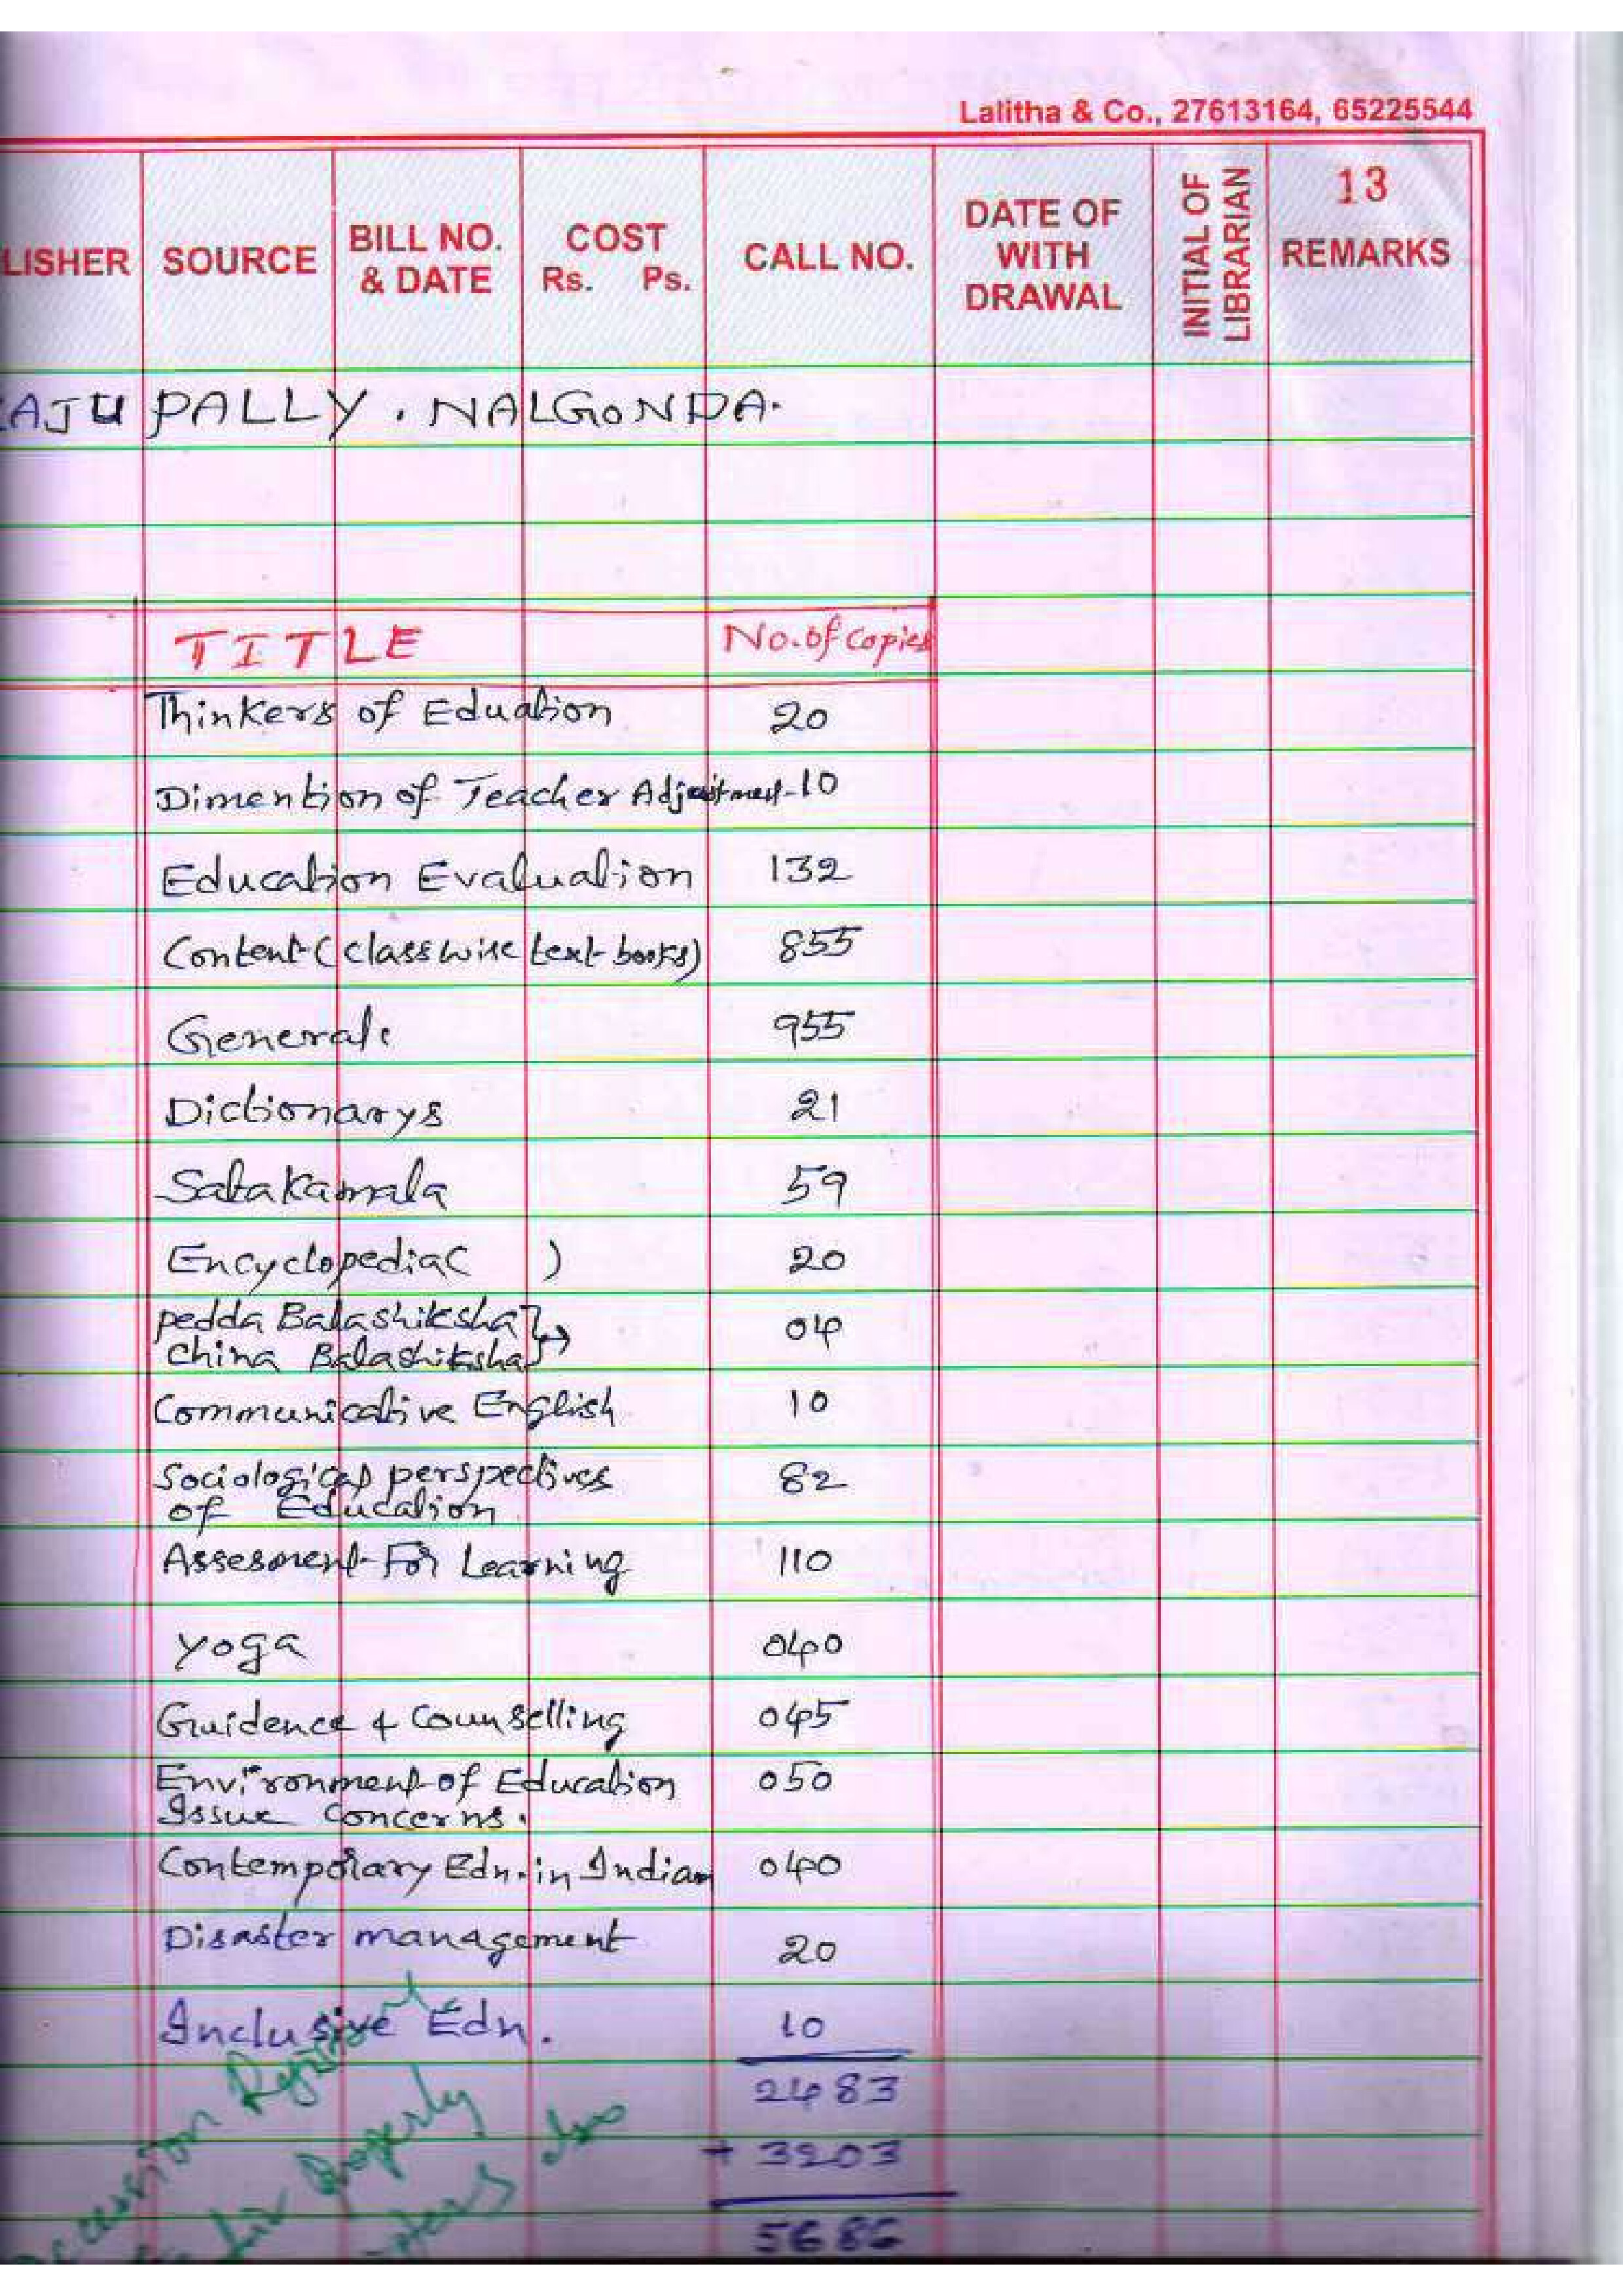 Lalitha & Co., 27613164, 65225544
13
LISHER SOURCE BILL NO. & DATE COST Rs. Ps. CALL NO. DATE OF WITH DRAWAL INITIAL OF LIBRARIAN REMARKS
AJU PALLY. NALGONDA.
TITLE No. of copies
Thinkers of Eduation 20
Dimention of Teacher Adjustment-10
Education Evaluation 132
Content (classwise text books) 855
General: 955
Dictionarys 21
Satakamala 59
Encyclopedia( ) 20
pedda Balashiksha
China Balashiksha } → 04
Communicative English 10
Sociological perspectives 82
of Education
Assesment For Learning 110
Yoga 040
Guidence & Counselling 045
Environment of Education 050
Issue Concerns.
Contemporary Edn. in Indian 040
Disaster management 20
Inclusive Edn. 10
2483
+ 3203
5686
Accession Register
properly
also